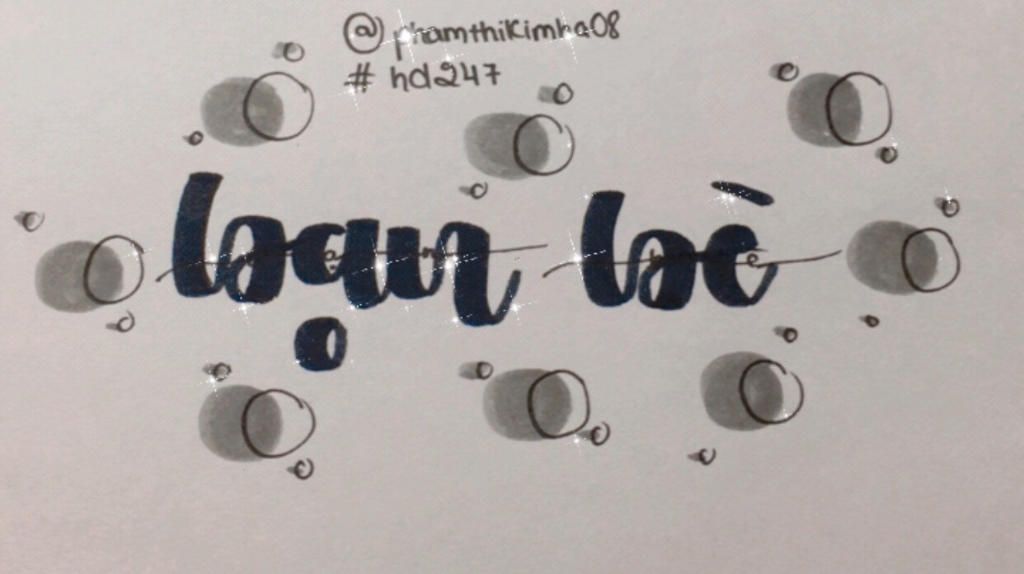 @phamthikimha08
#hd247
bạn bè